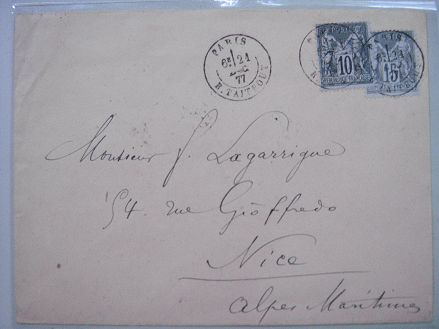 PARIS
6E 21
DEC
77
R. TAITBOUT
10
15
Monsieur J. Lagarrigue
54. rue Gioffredo
Nice
Alpes Maritimes